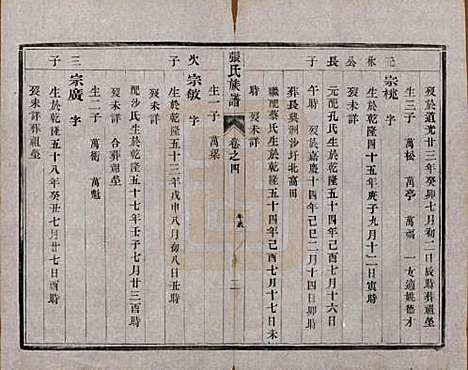 歿於道光廿三年癸卯七月初二日辰時葬祖塋
生三子 萬松 萬亭 萬福 一女適姚
元 東 公 長
宗桃 字
生於乾隆四十五年庚子九月十二日寅時
元配孔氏生於乾隆五十四年己酉七月十六日
午時 歿於嘉慶十四年己巳二月十四日
葬長興洲沙圩北高田
繼配蔡氏生於乾隆五十四年己酉七月十七日未
時 歿未詳
張氏族譜
卷之四
二
生一子 萬葉
次 子
宗敏 字
生於乾隆五十三年戊申八月初八日丑時
配沙氏生於乾隆五十七年壬子七月廿三酉時
歿未詳 合葬祖塋
生二子 萬衡 萬魁
三 子
宗廣 字
生於乾隆五十八年癸丑七月廿七日酉時
歿未詳葬祖塋